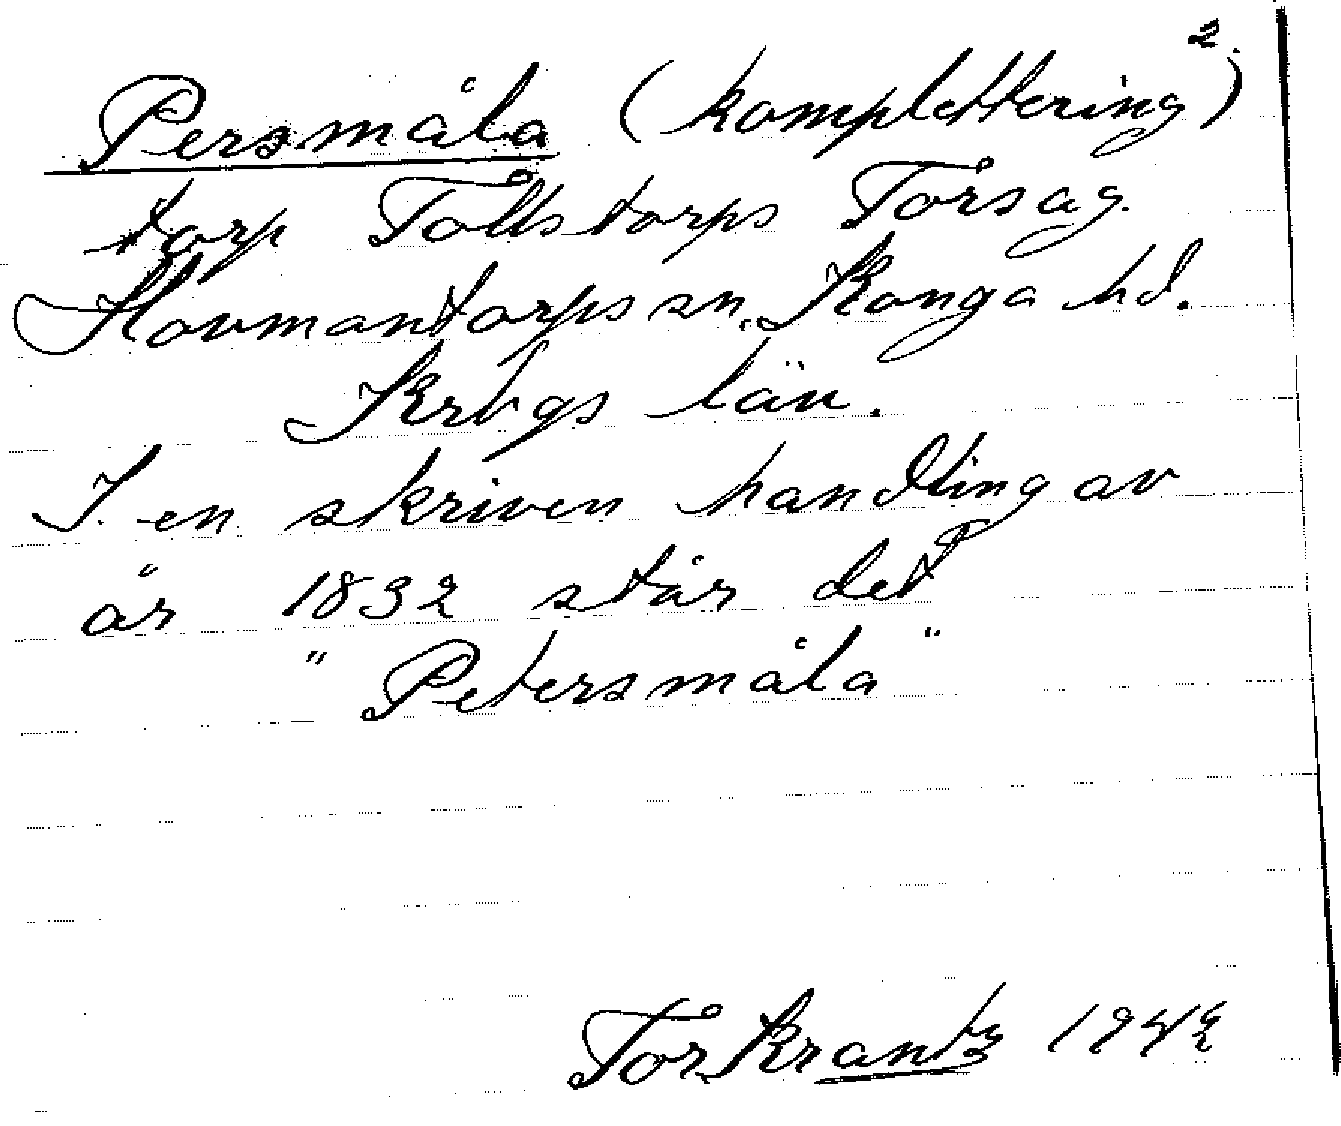 2.
Persmåla (komplettering)
torp Tollstorps Torsag.
Hovmantorps sn. Konga hd.
Krbgs län.
I en skriven handling av
år 1832 står det
" Petersmåla "
Tor Krantz 1942